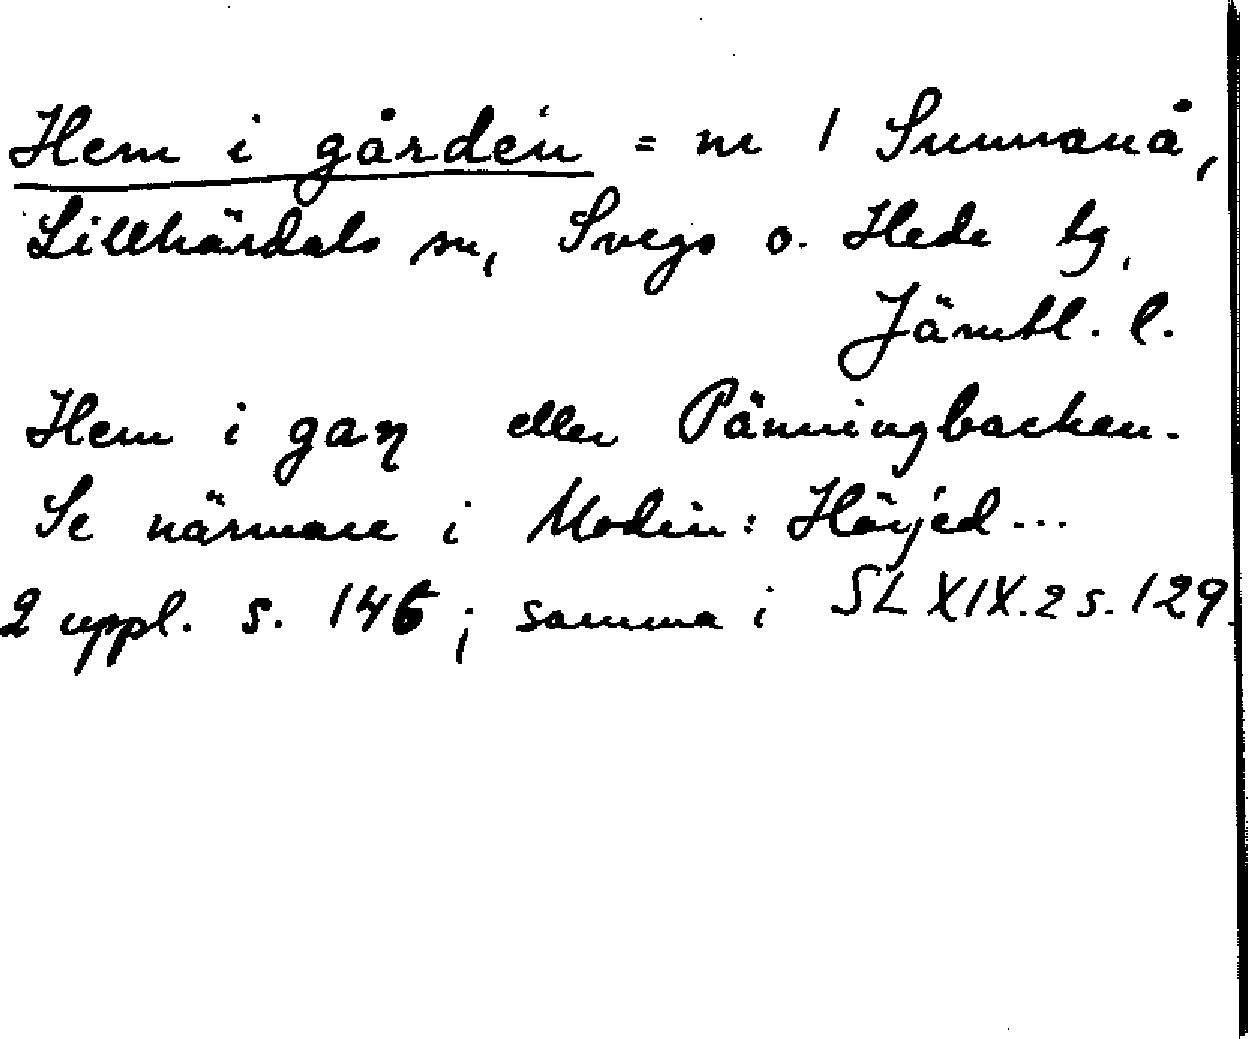 Hem i gården = nr 1 Sunnanå,
Lillhärdals sn, Svegs o. Hede tg.
Jämtl. l.
Hem i gaɳ eller Pänningbacken.
Se närmare i Modin: Härjed...
2 uppl. s. 146; samma i SL XIX.2 s. 129.